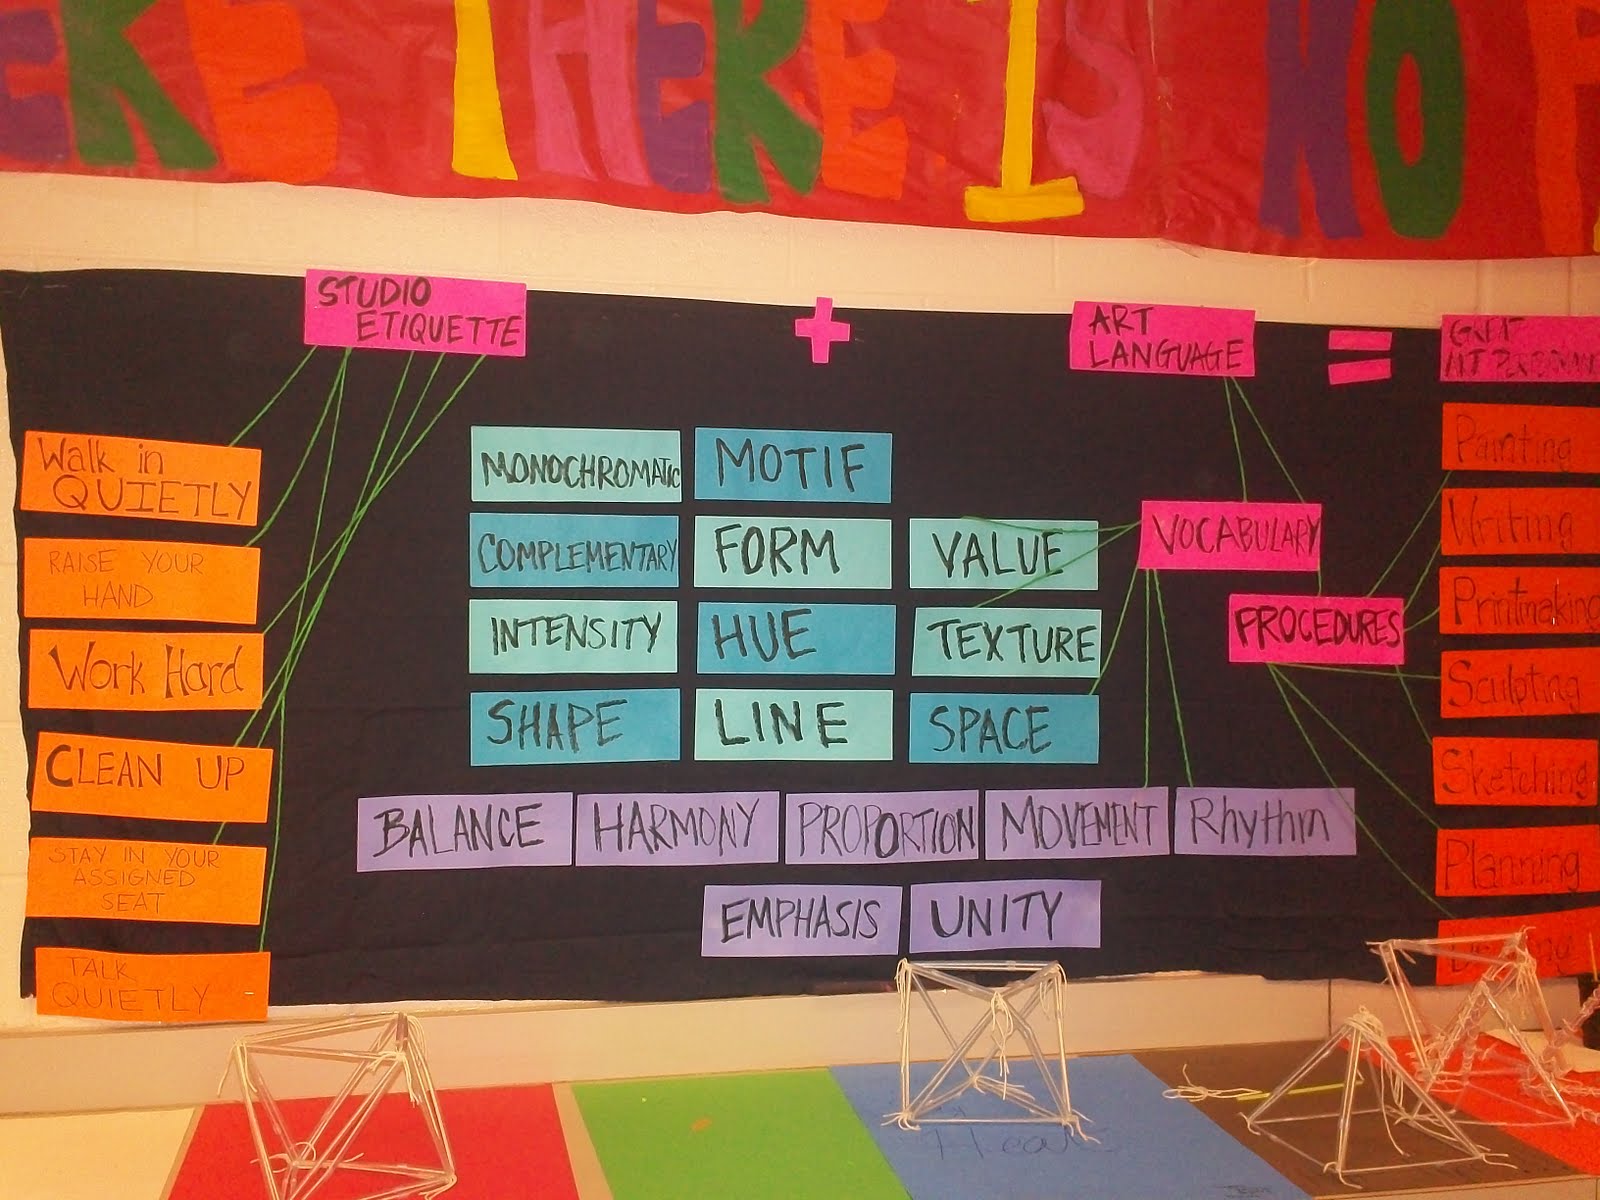 ERE THERE IS NO
STUDIO
ETIQUETTE
+
ART
LANGUAGE
=
GREAT
ART
Walk in
QUIETLY
RAISE YOUR
HAND
WORK HarD
CLEAN UP
STAY IN YOUR
ASSIGNED
SEAT
TALK
QUIETLY
MONOCHROMATIC
MOTIF
COMPLEMENTARY
FORM
VALUE
INTENSITY
HUE
TEXTURE
SHAPE
LINE
SPACE
BALANCE
HARMONY
PROPORTION
MOVEMENT
Rhythm
EMPHASIS
UNITY
VOCABULARY
PROCEDURES
Painting
Writing
Printmaking
Sculpting
Sketching
Planning